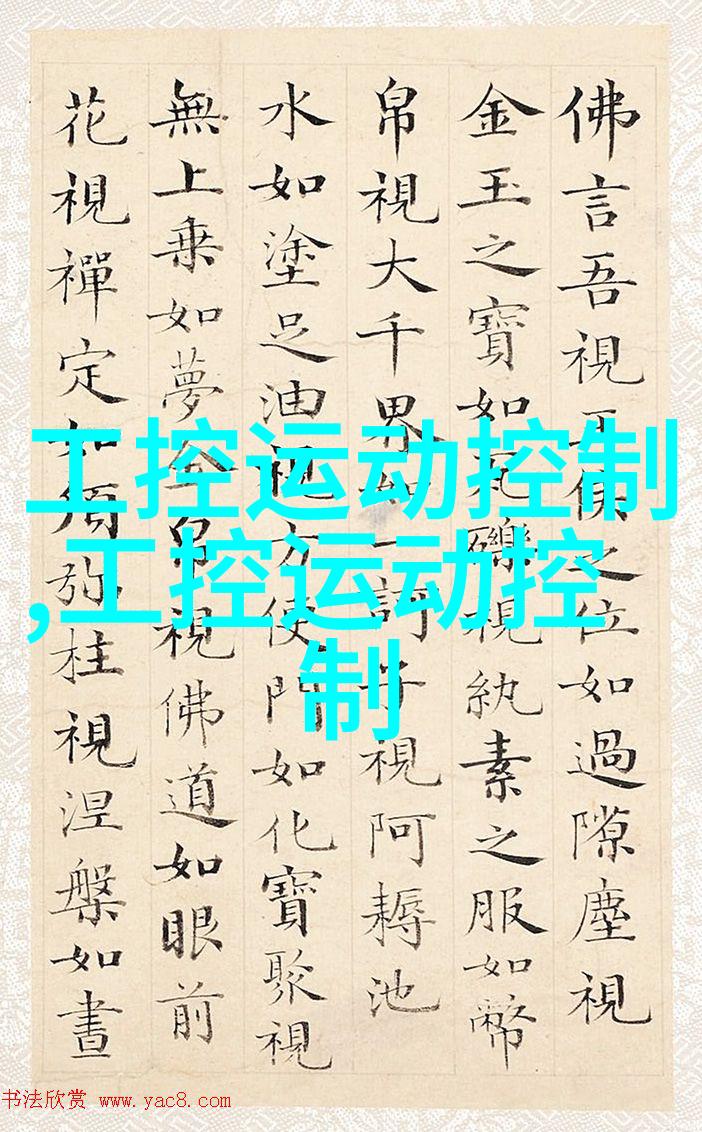 佛言吾視王侯之位如過隙塵視
金玉之寶如瓦礫視紈素之服如幣
帛視大千界如一訶子視阿耨池
水如塗足油視方便門如化寶聚視
無上乗如夢金帛視佛道如眼前
花視禪定如須弥柱視涅槃如晝
工控运动控制
,工控运动控
制
书法欣赏 www.yac8.com